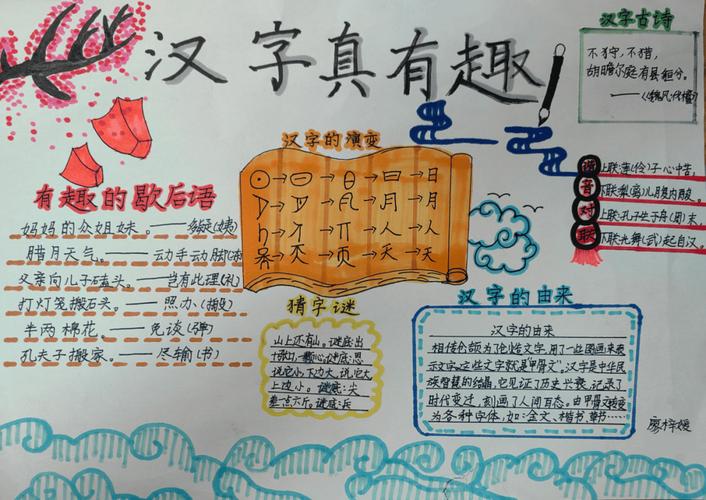 汉字真有趣
汉字古诗
不狩,不猎,
胡瞻尔庭有县貆分。
——《魏风·伐檀》
有趣的歇后语
妈妈的众姐妹。——多疑(姨)
腊月天气。——动手动脚(冻)
父亲向儿子磕头。——岂有此理(礼)
打灯笼搬石头。——照办(搬)
半两棉花。——免谈(弹)
孔夫子搬家。——尽输(书)
汉字的演变
日
月
人
天
猜字谜
山上还有山。谜底:出
十颗心,一颗心。谜底:思
说它小,下边大,说它大
上边小。谜底:尖
差一点六斤。谜底:兵
谐音对联
上联:莲(怜)子心中苦,
下联:梨(离)儿腹内酸。
上联:孔子生于舟(周)末,
下联:光舞(武)起自汉。
汉字的由来
汉字的由来
相传仓颉为了创造文字,用了一些图画来表
示文字,这些文字就是“甲骨文”。汉字是中华民
族智慧的结晶,它见证了历史兴衰,记录了
时代变迁,刻画了人间百态。由甲骨文转变
为各种字体,如:金文、楷书、草书……
廖梓媛